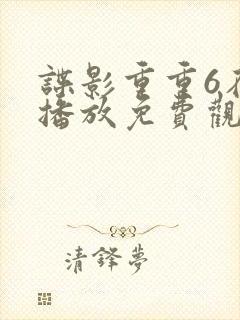 諜影重重6在
播放免費觀
清鋒夢